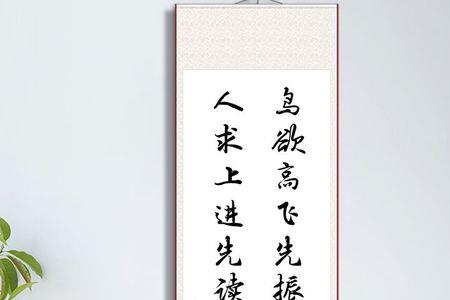 鸟欲高飞先振
人求上进先读